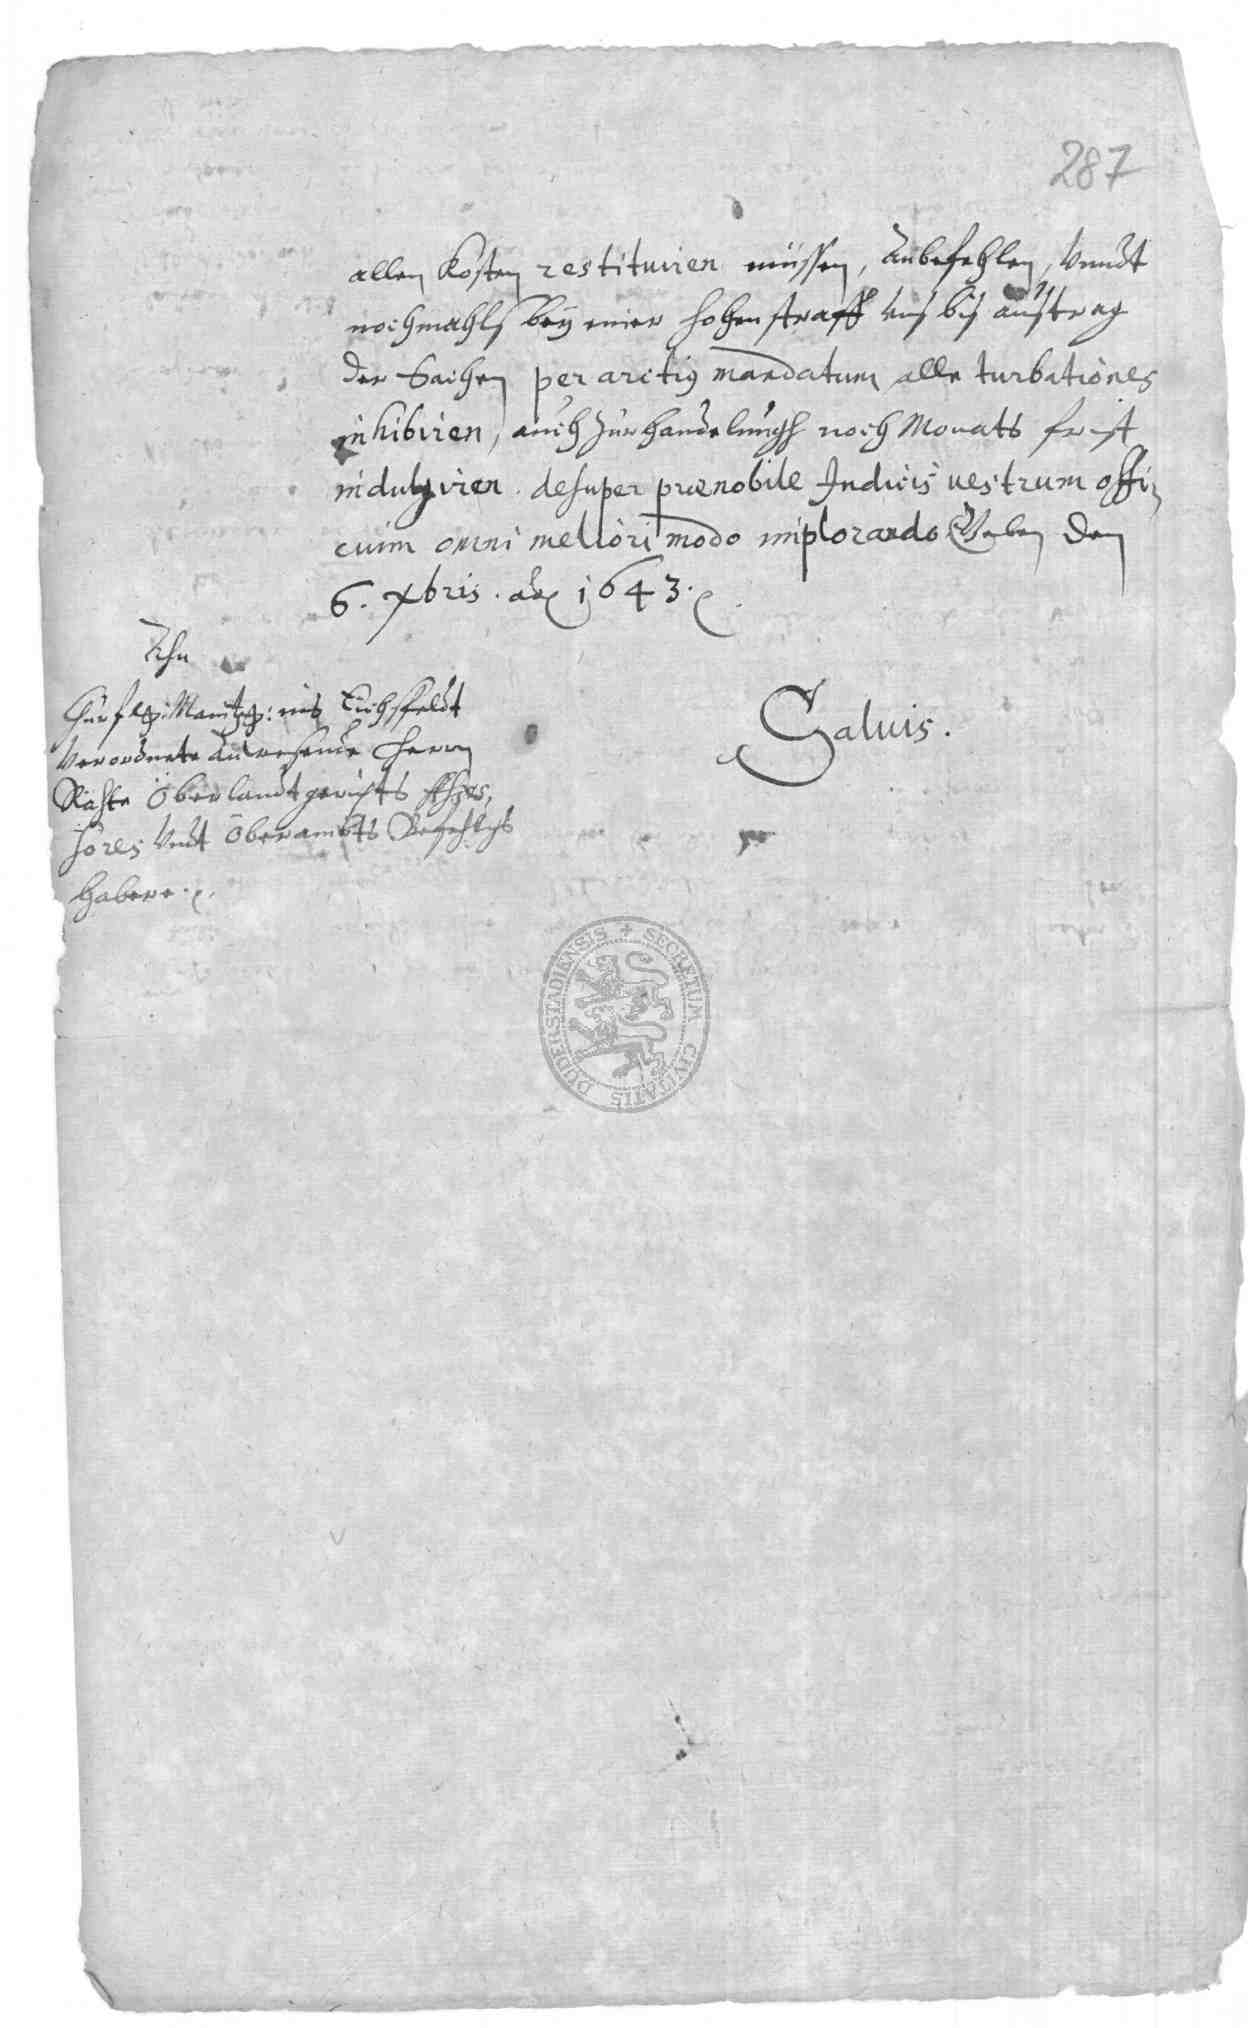 287
allen Kosten restituiren müssen, Anbefehlen, Unndt
nochmahls bey einer hohen straff uns bis austrag
der Sachen per arctius mandatum alle turbationes
inhibiren, auch zur handelungh noch Monats frist
indulgiren. desuper prænobile Judicis vestrum offi-
cium omni meliori modo implorando Geben den
6. xbris. ao 1643.
Ahn
Churfl: Maintz: ins Eichsfeldt
Verordnete Anwesende Herrn
Räthe Oberlandtgerichts Asses,
sores Undt Oberambts Befehlichs
habere.
Salvis.
DUDERSTADIENSIS + SECRETUM CIVITATIS